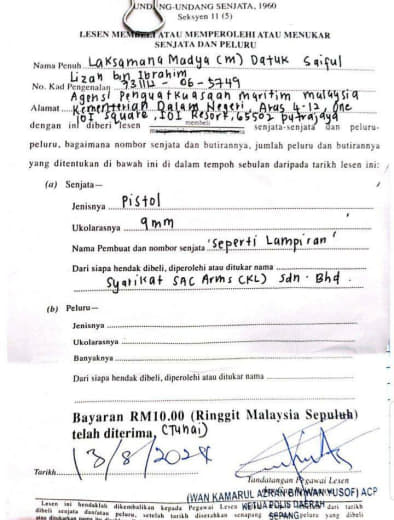 UNDANG-UNDANG SENJATA, 1960
Seksyen 11 (5)
LESEN MEMBELI ATAU MEMPEROLEHI ATAU MENUKAR
SENJATA DAN PELURU
Nama Penuh Laksamana Madya (m) Datuk Saiful
Lizan bin Ibrahim
No. Kad Pengenalan -06-5749
Agensi Penguatkuasaan maritim malaysia
Alamat Kementerian Dalam Negeri, Aras 4-12, One
IOI Square, IOI Resort, 65502 putrajaya
dengan ini diberi lesen membeli senjata-senjata dan peluru-
peluru, bagaimana nombor senjata dan butirannya, jumlah peluru dan butirannya
yang ditentukan di bawah ini di dalam tempoh sebulan daripada tarikh lesen ini:
(a) Senjata—
Jenisnya Pistol
Ukolarasnya 9mm
Nama Pembuat dan nombor senjata 'seperti Lampiran'
Dari siapa hendak dibeli, diperolehi atau ditukar nama
Syarikat SAC Arms (KL) Sdn. Bhd.
(b) Peluru—
Jenisnya
Ukolarasnya
Banyaknya
Dari siapa hendak dibeli, diperolehi atau ditukar nama
Bayaran RM10.00 (Ringgit Malaysia Sepuluh)
telah diterima, (Tunai)
Tarikh 13/8/2024
Tandatangan Pegawai Lesen
(WAN KAMARUL AZRAN BIN WAN YUSOF) ACP
KETUA POLIS DAERAH
SEPANG
Lesen ini hendaklah dikembalikan kepada Pegawai Lesen dari tarikh
dibeli senjata dan/atau peluru, setelah tarikh diserahkan senapang peluru yang dibeli